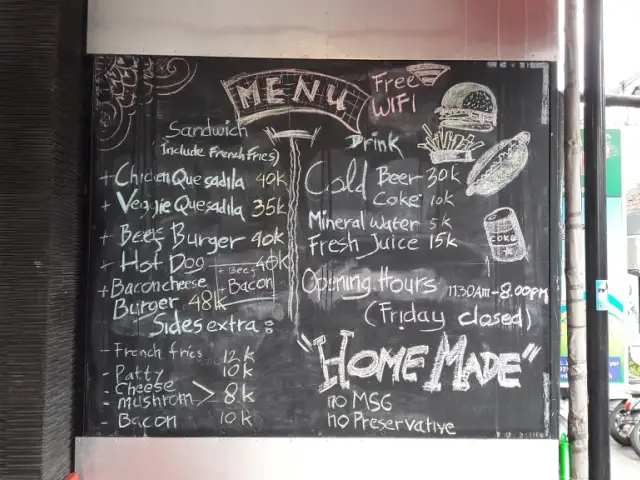 MENU
Free
WIFI
Sandwich
(Include French Fries)
+ Chicken Quesadilla 40k
+ Veggie Quesadilla 35k
+ Beef Burger 40k
+ Hot Dog 40k
+ Beef
+ Bacon
+ Baconcheese
Burger 48k
Sides extra :
- French fries 12k
- Patty 10k
- Cheese
- mushrom > 8k
- Bacon 10k
Drink
Cold Beer 30k
Coke 10k
Mineral Water 5k
Fresh Juice 15k
COKE
Opening Hours 11:30Am-8.00pm
(Friday closed)
"HOME MADE"
no MSG
no Preservative